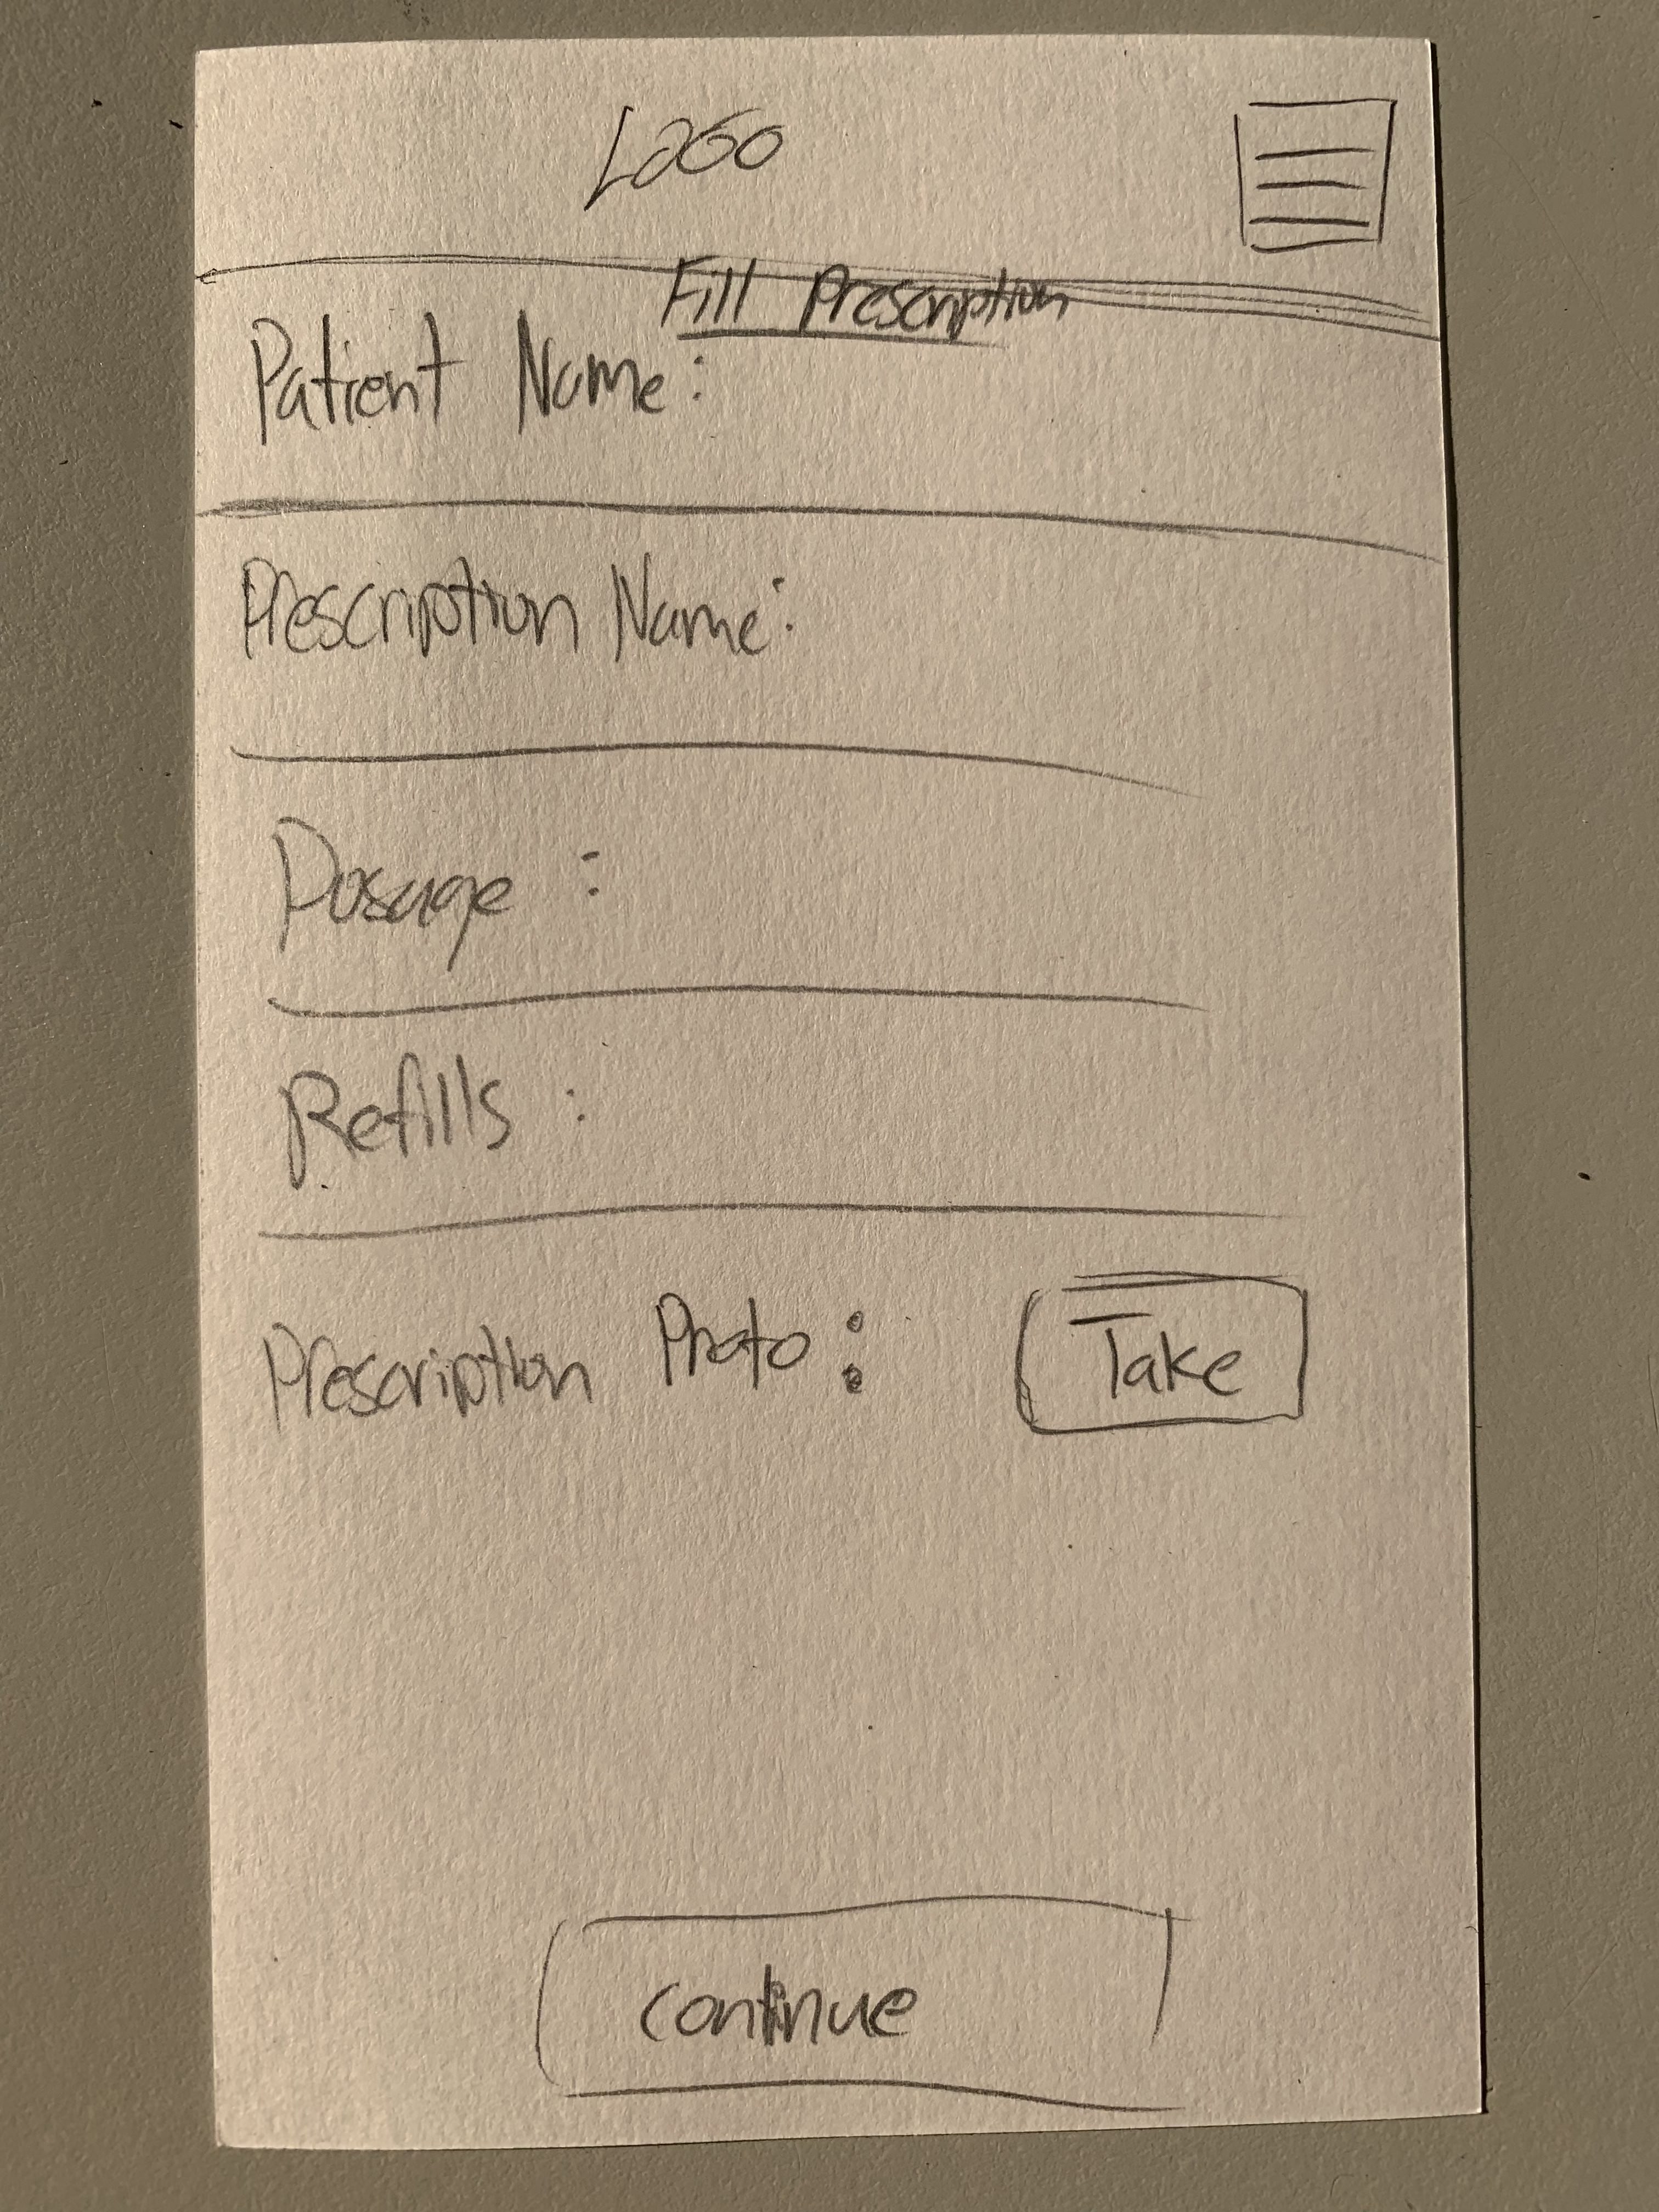 LOGO
Fill Prescription
Patient Name:
Prescription Name:
Dosage :
Refills :
Prescription Photo :
Take
continue